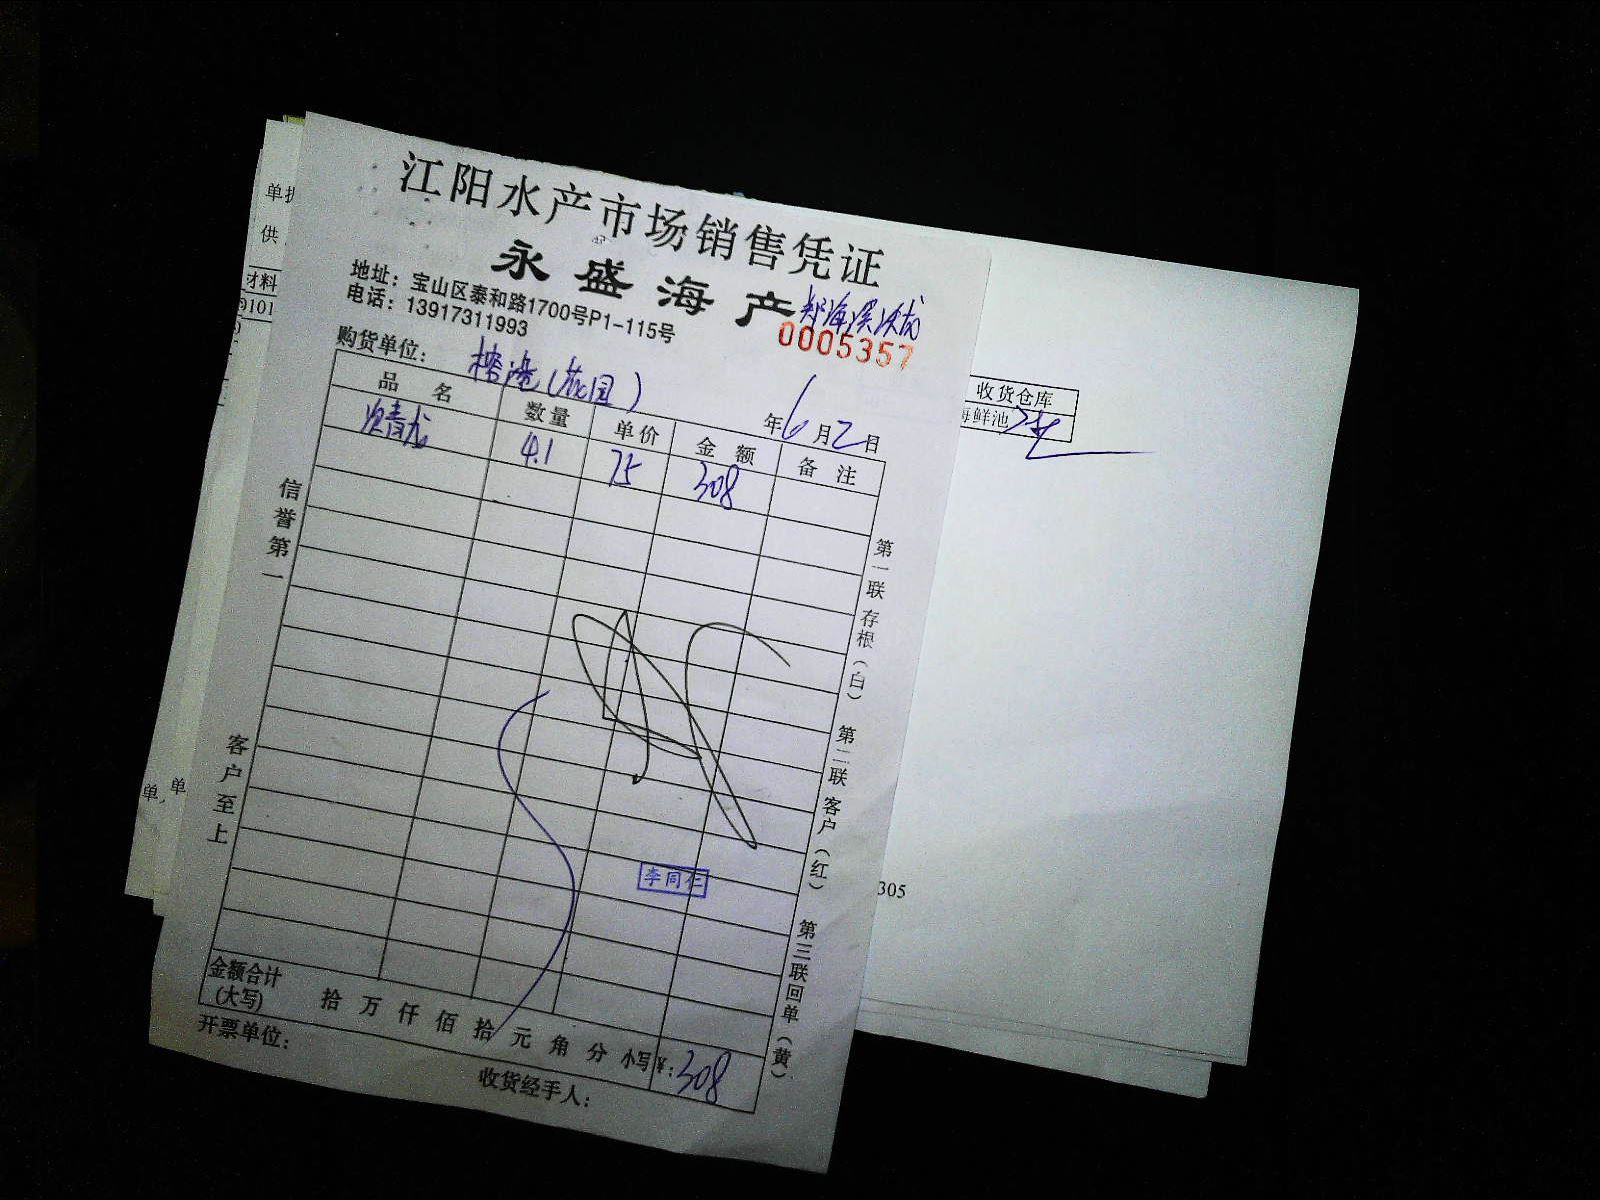 江阳水产市场销售凭证
永盛海产
地址：宝山区泰和路1700号P1-115号
电话：13917311993
0005357
购货单位： 榕港（花园）
年6月2日
品名 数量 单价 金额 备注
次青龙 4.1 75 308
信誉第一
客户至上
第一联存根（白） 第二联客户（红） 第三联回单（黄）
李同仁
金额合计
（大写） 拾 万 仟 佰 拾 元 角 分 小写¥：308
开票单位：
收货经手人：
供
材料
101
单，单
收货仓库
海鲜池
305